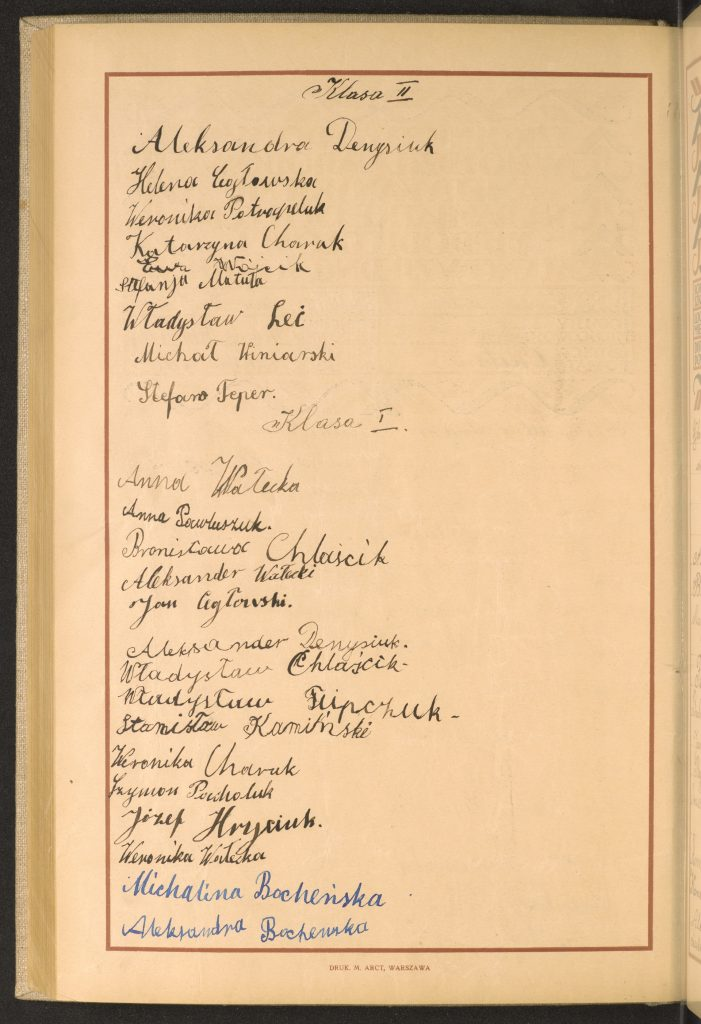 Klasa II
Aleksandra Denysiuk
Helena Cegłowska
Weronika Potrapeluk
Katarzyna Charuk
Ewa Wójcik
Stefanja Matuła
Władysław Leć
Michał Winiarski
Stefan Feper.
Klasa I.
Anna Wałecka
Anna Pawluszuk.
Bronisława Chlaścik
Aleksander Wałecki
Jan Cegłowski.
Aleksander Denysiuk.
Władysław Chlaścik-
Władysław Filipczuk-
Stanisław Kamiński
Weronika Charuk
Szymon Pacholuk
Józef Hryciuk.
Weronika Wałecka
Michalina Bocheńska
Aleksandra Bochenska
DRUK. M. ARCT, WARSZAWA